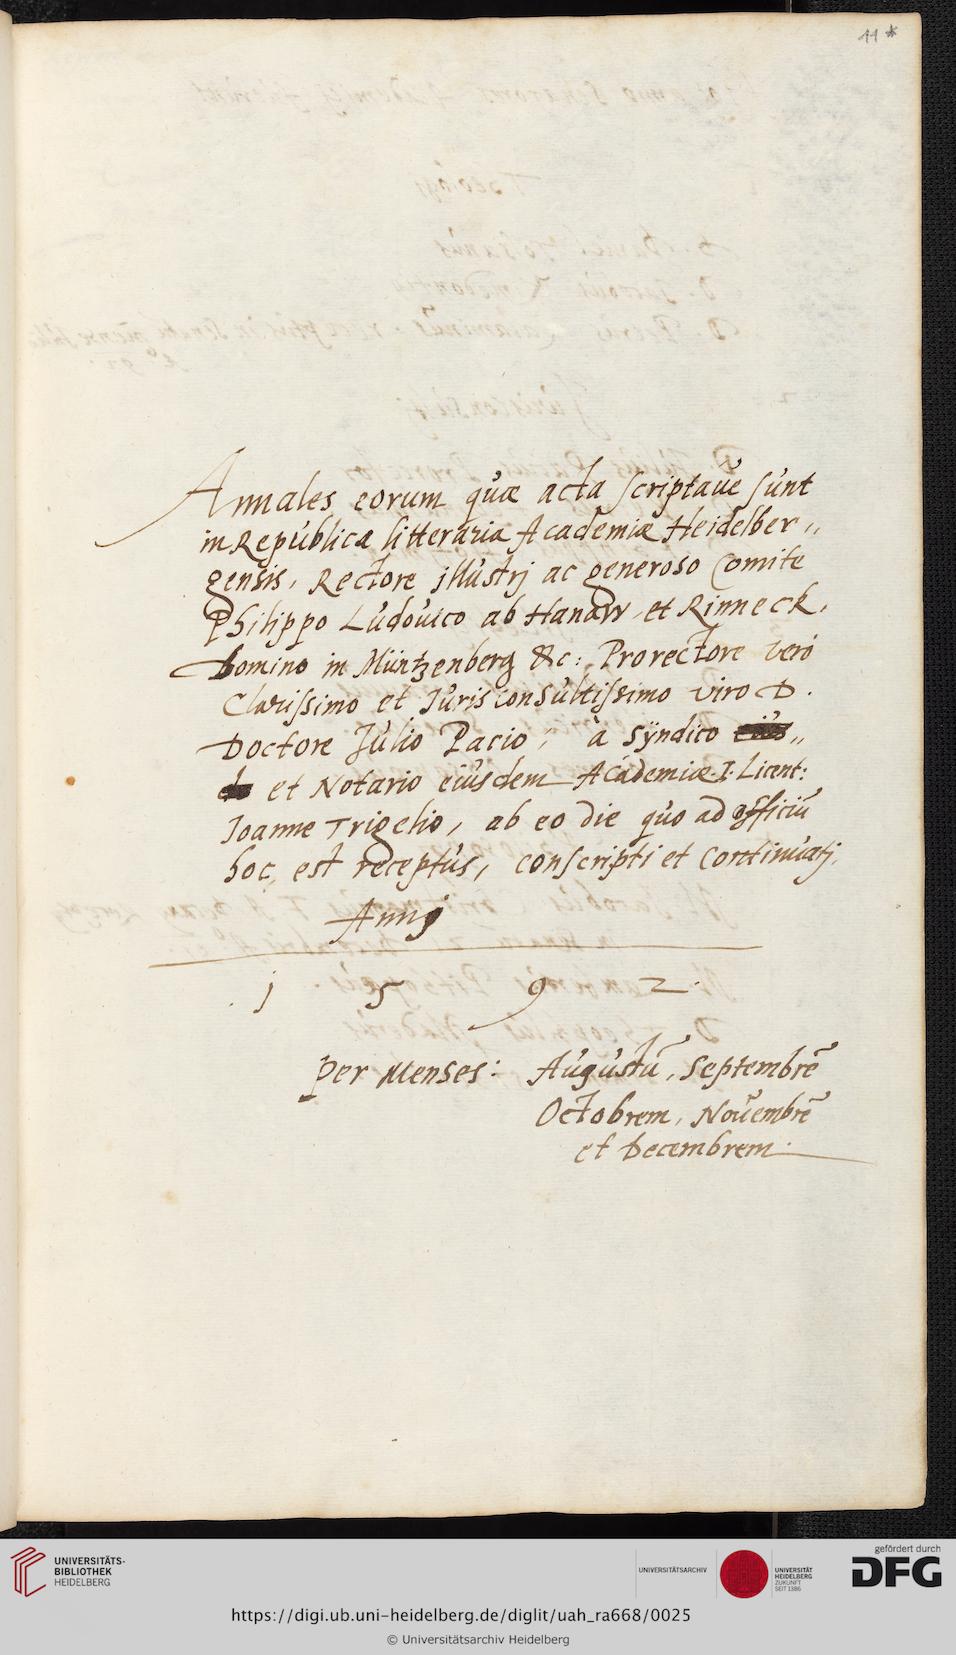 11*
Annales eorum quæ acta scriptaúe sunt
in Republica litteraria Academiæ Heidelber„
gensis, Rectore jllustrj ac generoso Comite
Philippo Ludouico ab Hanaw et Rinneck,
Domino in Müntzenberg &c: Prorectore verò
Clarissimo et Jurisconsultissimo viro D.
Doctore Julio Pacio, à Syndico
et Notario eiusdem Academiæ I. Licent:
Joanne Trigelio, ab eo die quo ad officiū
hoc, est receptus, conscripti et continuatj.
Annj
1 5 9 2.
Per Menses: Augustū, Septembrē
Octobrem, Nouembrē
et Decembrem.
UNIVERSITÄTS-
BIBLIOTHEK
HEIDELBERG
UNIVERSITÄTSARCHIV
UNIVERSITÄT
HEIDELBERG
ZUKUNFT
SEIT 1386
gefördert durch
DFG
https://digi.ub.uni-heidelberg.de/diglit/uah_ra668/0025
© Universitätsarchiv Heidelberg